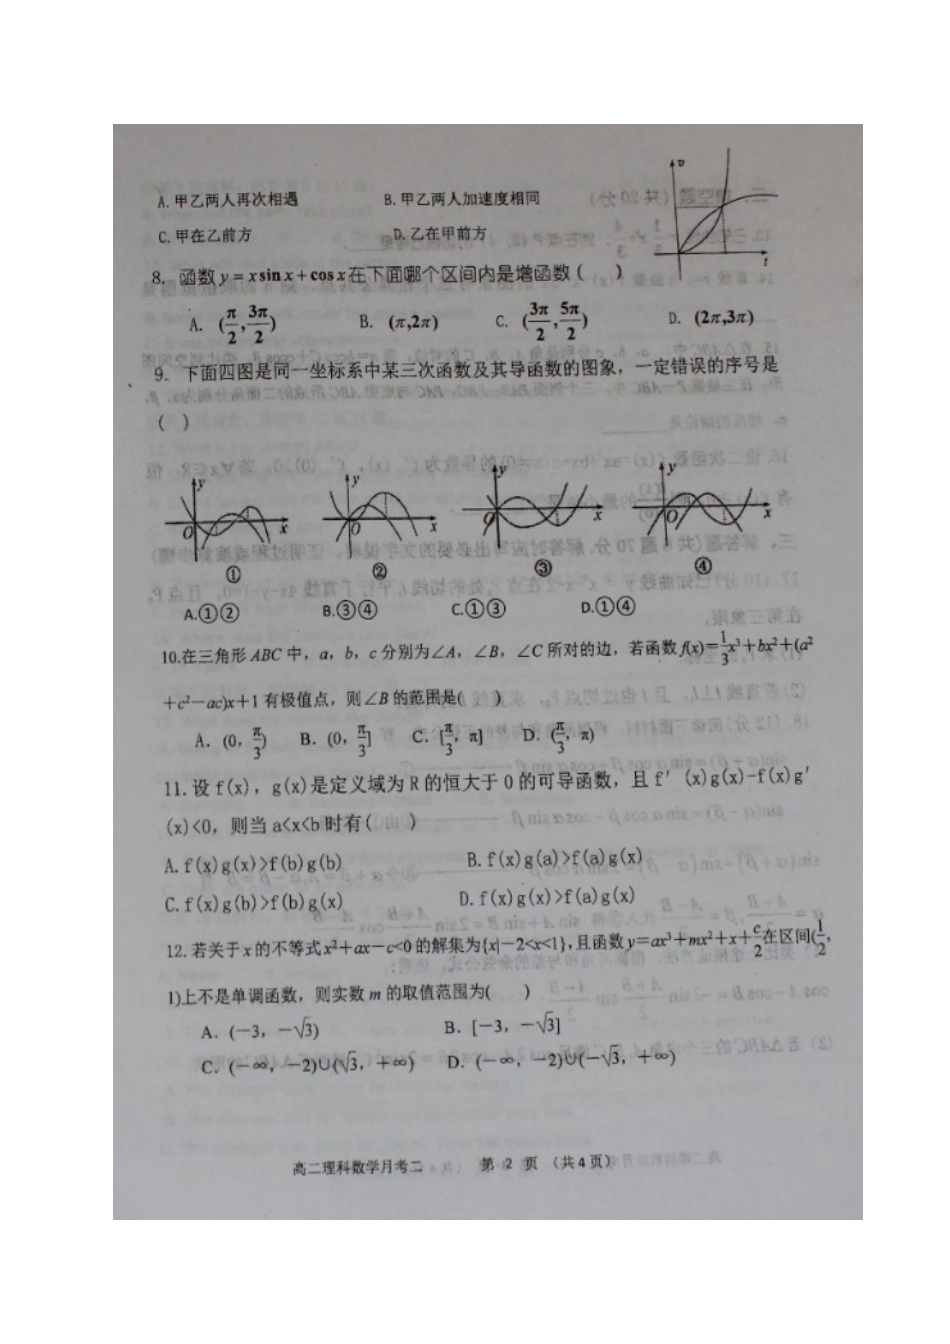 A.甲乙两人再次相遇 B.甲乙两人加速度相同
C.甲在乙前方 D.乙在甲前方
v
t
8. 函数 y = x sin x + cos x 在下面哪个区间内是增函数 ( )
A. (π/2, 3π/2) B. (π,2π) C. (3π/2, 5π/2) D. (2π,3π)
9. 下面四图是同一坐标系中某三次函数及其导函数的图象，一定错误的序号是
( )
y y y y
O x O x O x O x
① ② ③ ④
A.①② B.③④ C.①③ D.①④
10.在三角形 ABC 中，a，b，c 分别为∠A，∠B，∠C 所对的边，若函数 f(x)=1/3x³+bx²+(a²
+c²−ac)x+1 有极值点，则∠B 的范围是( )
A. (0, π/3) B. (0, π/3] C. [π/3, π] D. (π/3, π)
11.设 f(x)，g(x)是定义域为 R 的恒大于 0 的可导函数，且 f′(x)g(x)-f(x)g′
(x)<0，则当 a<x<b 时有( )
A.f(x)g(x)>f(b)g(b) B.f(x)g(a)>f(a)g(x)
C.f(x)g(b)>f(b)g(x) D.f(x)g(x)>f(a)g(x)
12.若关于 x 的不等式 x²+ax−c<0 的解集为{x|−2<x<1}，且函数 y=ax³+mx²+x+c/2 在区间(1/2，
1)上不是单调函数，则实数 m 的取值范围为( )
A. (−3，−√3) B. [−3，−√3]
C. (−∞，−2)∪(√3，+∞) D. (−∞，−2)∪(−√3，+∞)
高二理科数学月考二 第 2 页 （共4页）